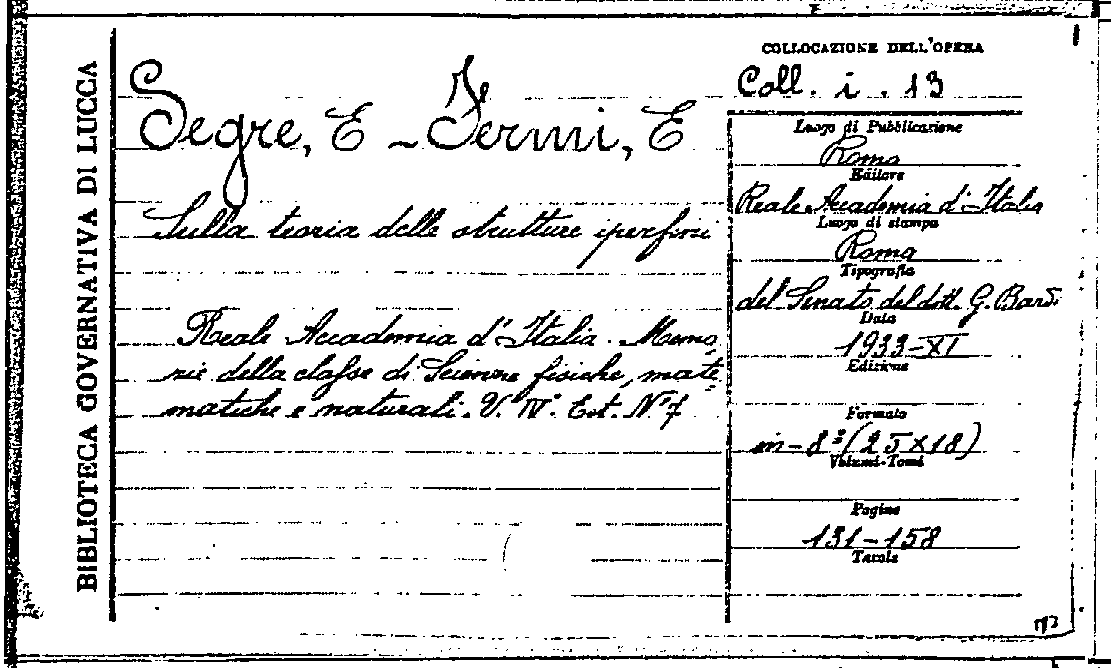 BIBLIOTECA GOVERNATIVA DI LUCCA
Segre, E - Fermi, E
Sulla teoria delle strutture iperfini
Reale Accademia d'Italia. Memo
rie della classe di Scienze fisiche, mate
matiche e naturali. V. IV. Est. N° 7
COLLOCAZIONE DELL'OPERA
Coll. i. 13
Luogo di Pubblicazione
Roma
Editore
Reale Accademia d'Italia
Luogo di stampa
Roma
Tipografia
del Senato del dott. G. Bardi
Data
1933-XI
Edizione
Formato
in-8° (25x18)
Volumi-Tomi
Pagine
131-158
Tavole